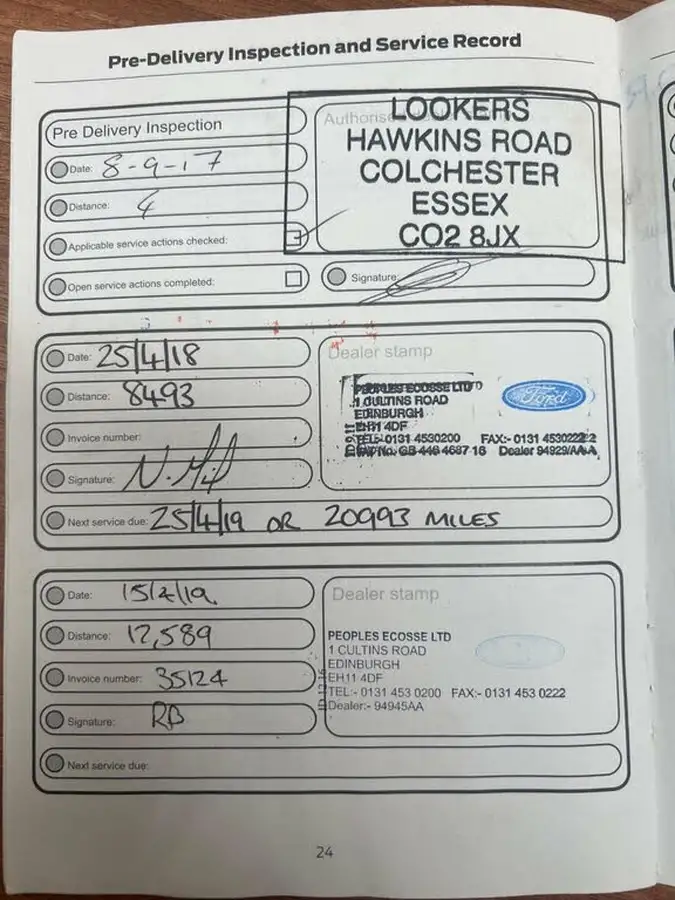 Pre-Delivery Inspection and Service Record
Pre Delivery Inspection
Date: 8-9-17
Distance: 4
Applicable service actions checked:
Open service actions completed:
Authoris
LOOKERS
HAWKINS ROAD
COLCHESTER
ESSEX
CO2 8JX
Signature:
Date: 25/4/18
Distance: 8493
Invoice number:
Signature:
Next service due: 25/4/19 OR 20993 MILES
Dealer stamp
PEOPLES ECOSSE LTD
1 CULTINS ROAD
EDINBURGH
EH11 4DF
TEL:- 0131 4530200 FAX:- 0131 4530222
No. GB 446 4687 16 Dealer 94929/AA
Ford
Date: 15/2/19
Distance: 12,589
Invoice number: 35124
Signature: RB
Next service due:
Dealer stamp
PEOPLES ECOSSE LTD
1 CULTINS ROAD
EDINBURGH
EH11 4DF
TEL:- 0131 453 0200 FAX:- 0131 453 0222
Dealer:- 94945AA
24